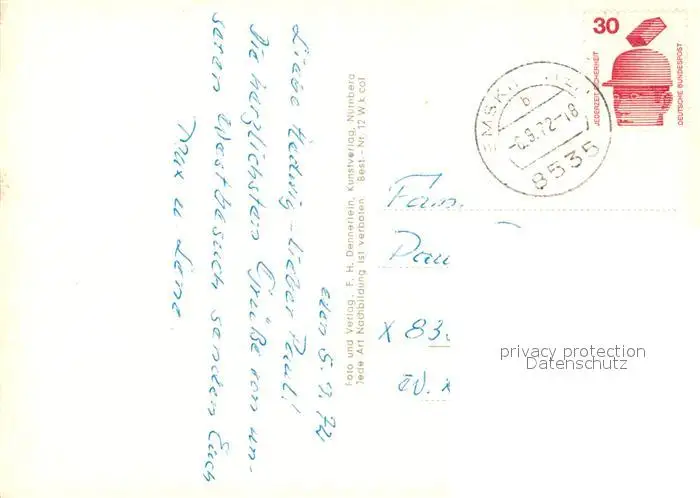 den 5.9.72
Liebe Hedwig - lieber Paul!
Die herzlichsten Grüße von un-
seren Westbesuch senden Euch
Max u. Lene
Foto und Verlag, F. H. Dennerlein, Kunstverlag, Nürnberg
Jede Art Nachbildung ist verboten. Best.-Nr. 12 W k col
30
JEDERZEIT SICHERHEIT
DEUTSCHE BUNDESPOST
b
-6.9.72-18
8535
Fam.
Pau
X 83.
privacy protection
Datenschutz